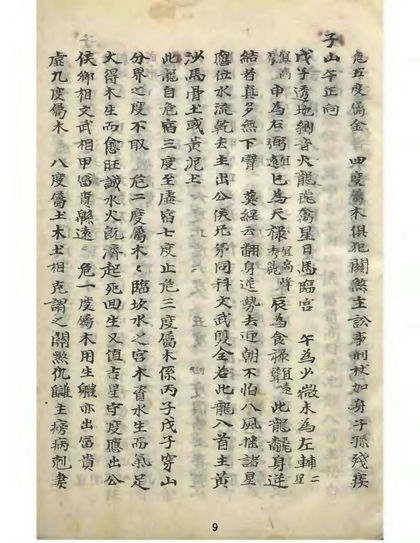 危五度屬金　四度屬木俱犯關煞主訟事刑杖加身子孫殘疾
子山午正向
戊子透地納音火龍 星日馬臨宮　午為少微未為左輔二星
宜高 申為右弼 宜遠 巳為天祿 宜高聳 辰為食祿 宜遠 此龍翻身逆
結者真多無下聲　葬經云翻身逆勢去迎朝不怕八風搖諸星
應位水流乾去主出公侯兄弟同科文武双全若此龍入首主黃
沙馬骨土或黃泥上
此龍自危宿三度至虛宿七度止危三度屬木係丙子戊子穿山
分界之度不取　危二度屬木々臨坎水之宮木資水生而氣足
大得木生而愈旺誠水火既濟起死回生又值吉星守度應出公
侯鄉相文武相甲富貴綿遠　危一度屬木用生 亦出富貴
虛九度屬木　八度屬土木土相克謂之關煞仇讎主癆病剋妻
9